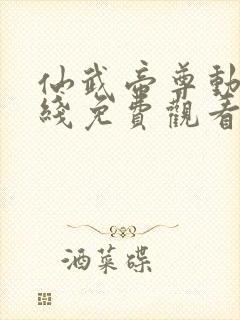 仙武帝尊動
綫免費觀看
酒菜碟